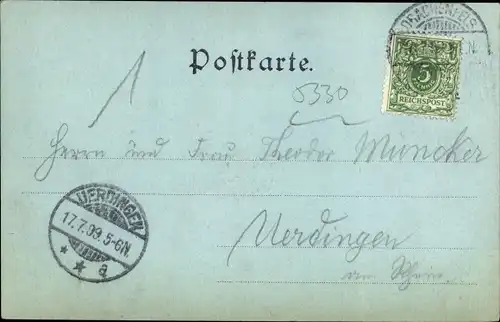 DRACHENFELS
Postkarte.
5
REICHSPOST
1
5330
Herrn und Frau Theodor Müncker
UERDINGEN
17.7.99.5-6N.
* * a
Uerdingen
am Rhein